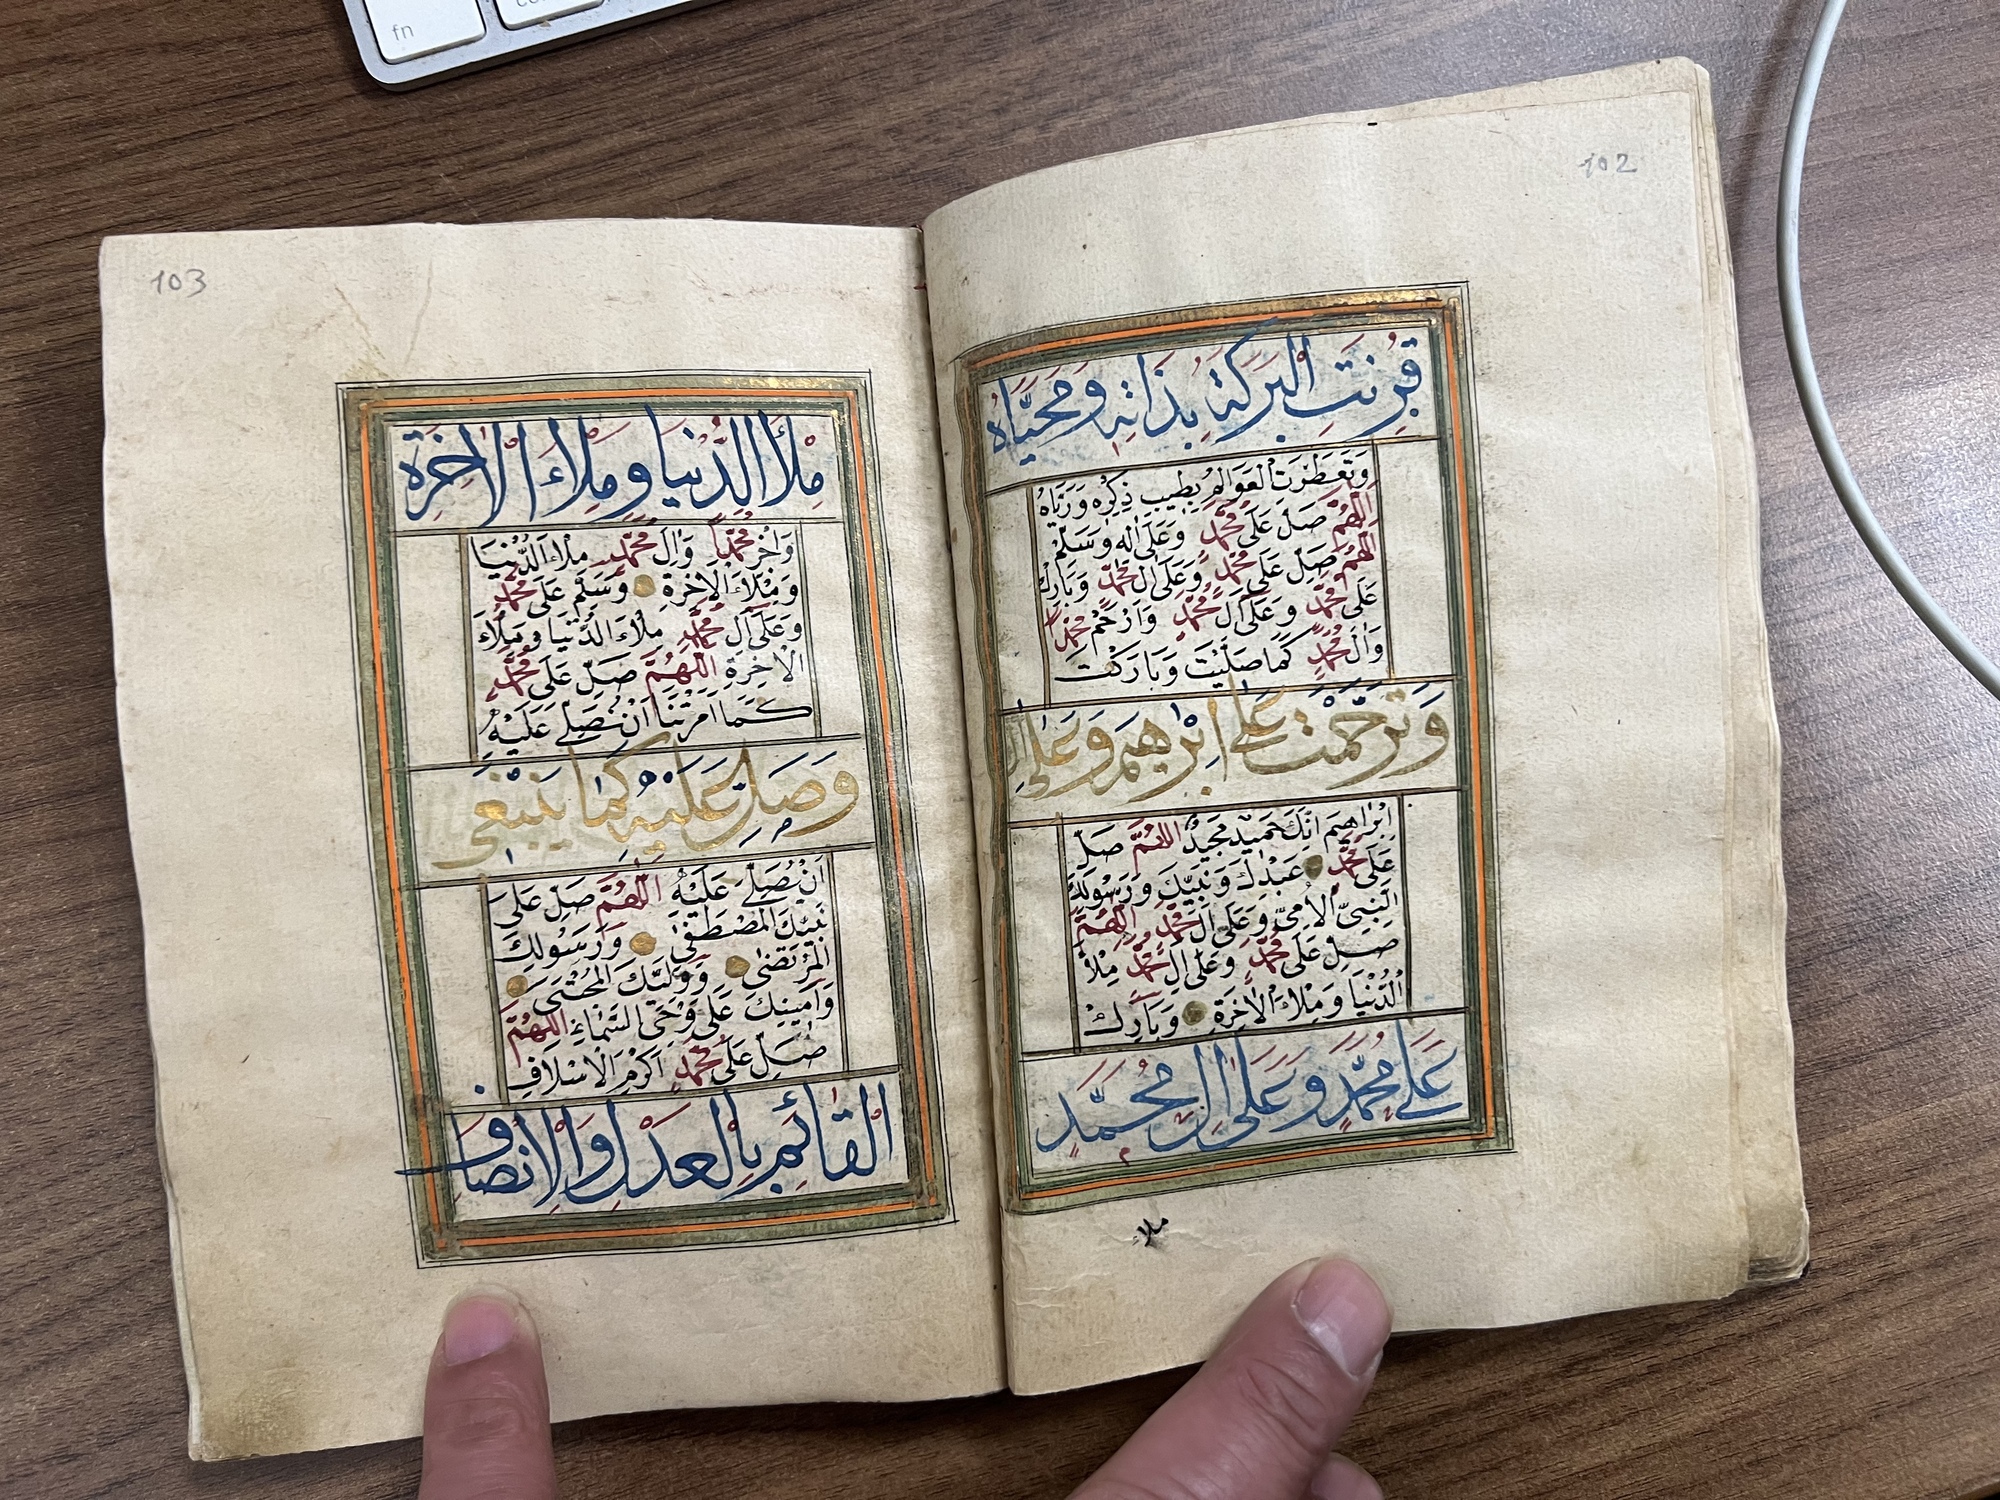 fn
102
قُرِنَتِ الْبَرَكَةُ بِذَاتِهِ وَمُحَيَّاهُ
وَتَعَطَّرَتِ الْعَوَالِمُ بِطِيبِ ذِكْرِهِ وَرَيَّاهُ
اَللّٰهُمَّ صَلِّ عَلَى مُحَمَّدٍ وَعَلَى اٰلِهِ وَسَلِّمْ
اَللّٰهُمَّ صَلِّ عَلَى مُحَمَّدٍ وَعَلَى اٰلِ مُحَمَّدٍ وَبَارِكْ
عَلَى مُحَمَّدٍ وَعَلَى اٰلِ مُحَمَّدٍ وَارْحَمْ مُحَمَّدًا
وَاٰلَ مُحَمَّدٍ كَمَا صَلَّيْتَ وَبَارَكْتَ
وَتَرَحَّمْتَ عَلَى اِبْرٰهِيمَ وَعَلَى اٰلِ
اِبْرَاهِيمَ اِنَّكَ حَمِيدٌ مَجِيدٌ اَللّٰهُمَّ صَلِّ
عَلَى مُحَمَّدٍ عَبْدِكَ وَنَبِيِّكَ وَرَسُولِكَ
النَّبِيِّ الْاُمِّيِّ وَعَلَى اٰلِ مُحَمَّدٍ اَللّٰهُمَّ
صَلِّ عَلَى مُحَمَّدٍ وَعَلَى اٰلِ مُحَمَّدٍ مِلْأَ
الدُّنْيَا وَمِلْاءَ الْاٰخِرَةِ وَبَارِكْ
عَلَى مُحَمَّدٍ وَعَلَى اٰلِ مُحَمَّدٍ
ملاء
103
مِلْأَ الدُّنْيَا وَمِلْاءَ الْاٰخِرَةِ
وَاجْزِ مُحَمَّدًا وَاٰلَ مُحَمَّدٍ مِلْاءَ الدُّنْيَا
وَمِلْاءَ الْاٰخِرَةِ وَسَلِّمْ عَلَى مُحَمَّدٍ
وَعَلَى اٰلِ مُحَمَّدٍ مِلْاءَ الدُّنْيَا وَمِلْاءَ
الْاٰخِرَةِ اَللّٰهُمَّ صَلِّ عَلَى مُحَمَّدٍ
كَمَا اَمَرْتَنَا اَنْ نُصَلِّيَ عَلَيْهِ
وَصَلِّ عَلَيْهِ كَمَا يَنْبَغِي
اَنْ يُصَلَّى عَلَيْهِ اَللّٰهُمَّ صَلِّ عَلَى
نَبِيِّكَ الْمُصْطَفٰى وَرَسُولِكَ
الْمُرْتَضٰى وَوَلِيِّكَ الْمُجْتَبٰى
وَاَمِينِكَ عَلَى وَحْيِ السَّمَاءِ اَللّٰهُمَّ
صَلِّ عَلَى مُحَمَّدٍ اَكْرَمِ الْاَسْلَافِ
الْقَائِمِ بِالْعَدْلِ وَالْاِنْصَافِ